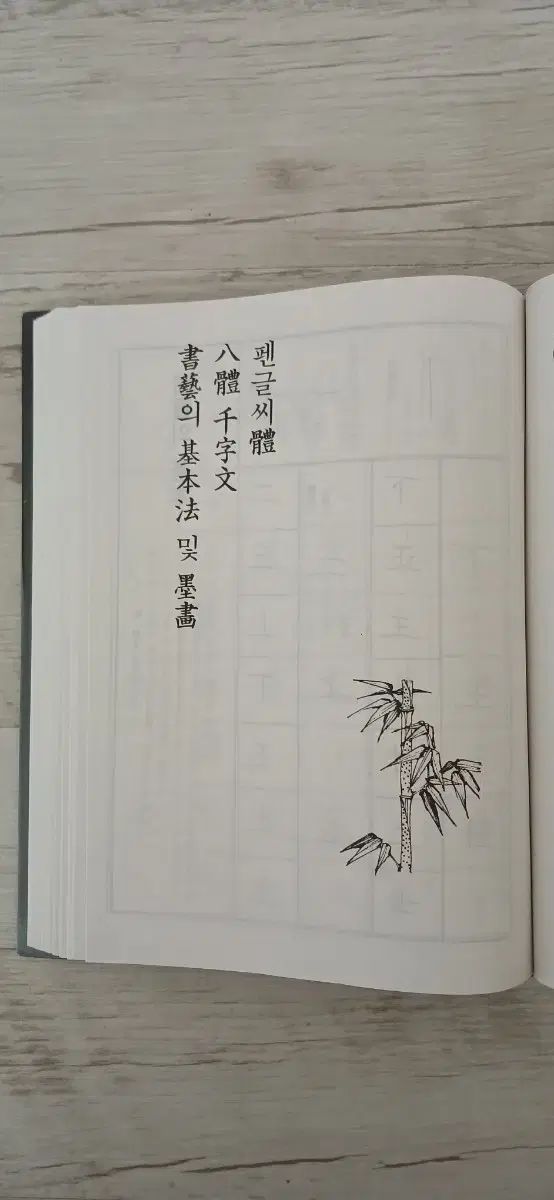 펜글씨體
八體 千字文
書藝의 基本法 및 墨畵